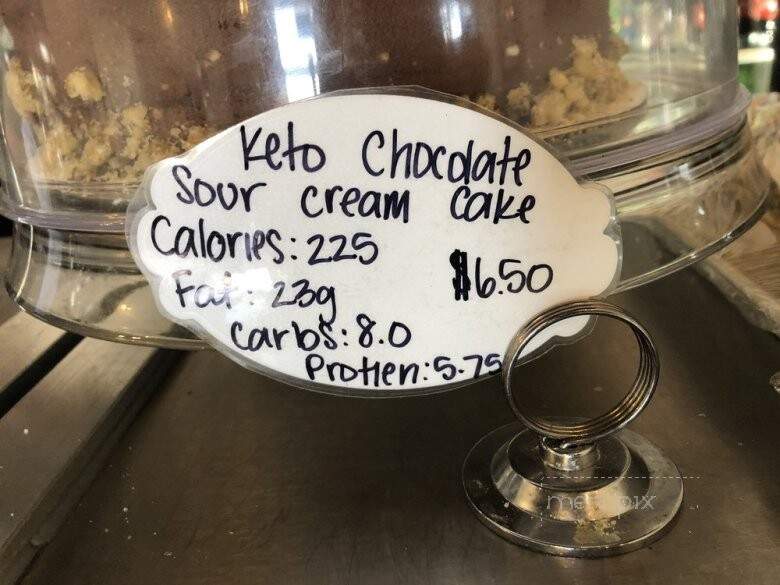 Keto Chocolate
Sour cream Cake
Calories: 225
$6.50
Fat: 23g
Carbs: 8.0
Protien: 5.75